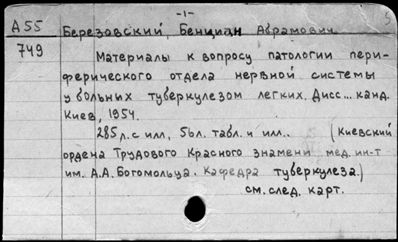 -1-
5
А55 Березовский, Бенциан Абрамович
749 Материалы к вопросу патологии пери-
ферического отдела нервной системы
у больных туберкулезом легких. Дисс... канд.
Киев, 1954.
285л. с илл, 56л. табл. и илл.. (Киевский
ордена Трудового Красного знамени мед. ин-т
им. А.А. Богомольца. Кафедра туберкулеза.)
см. след. карт.